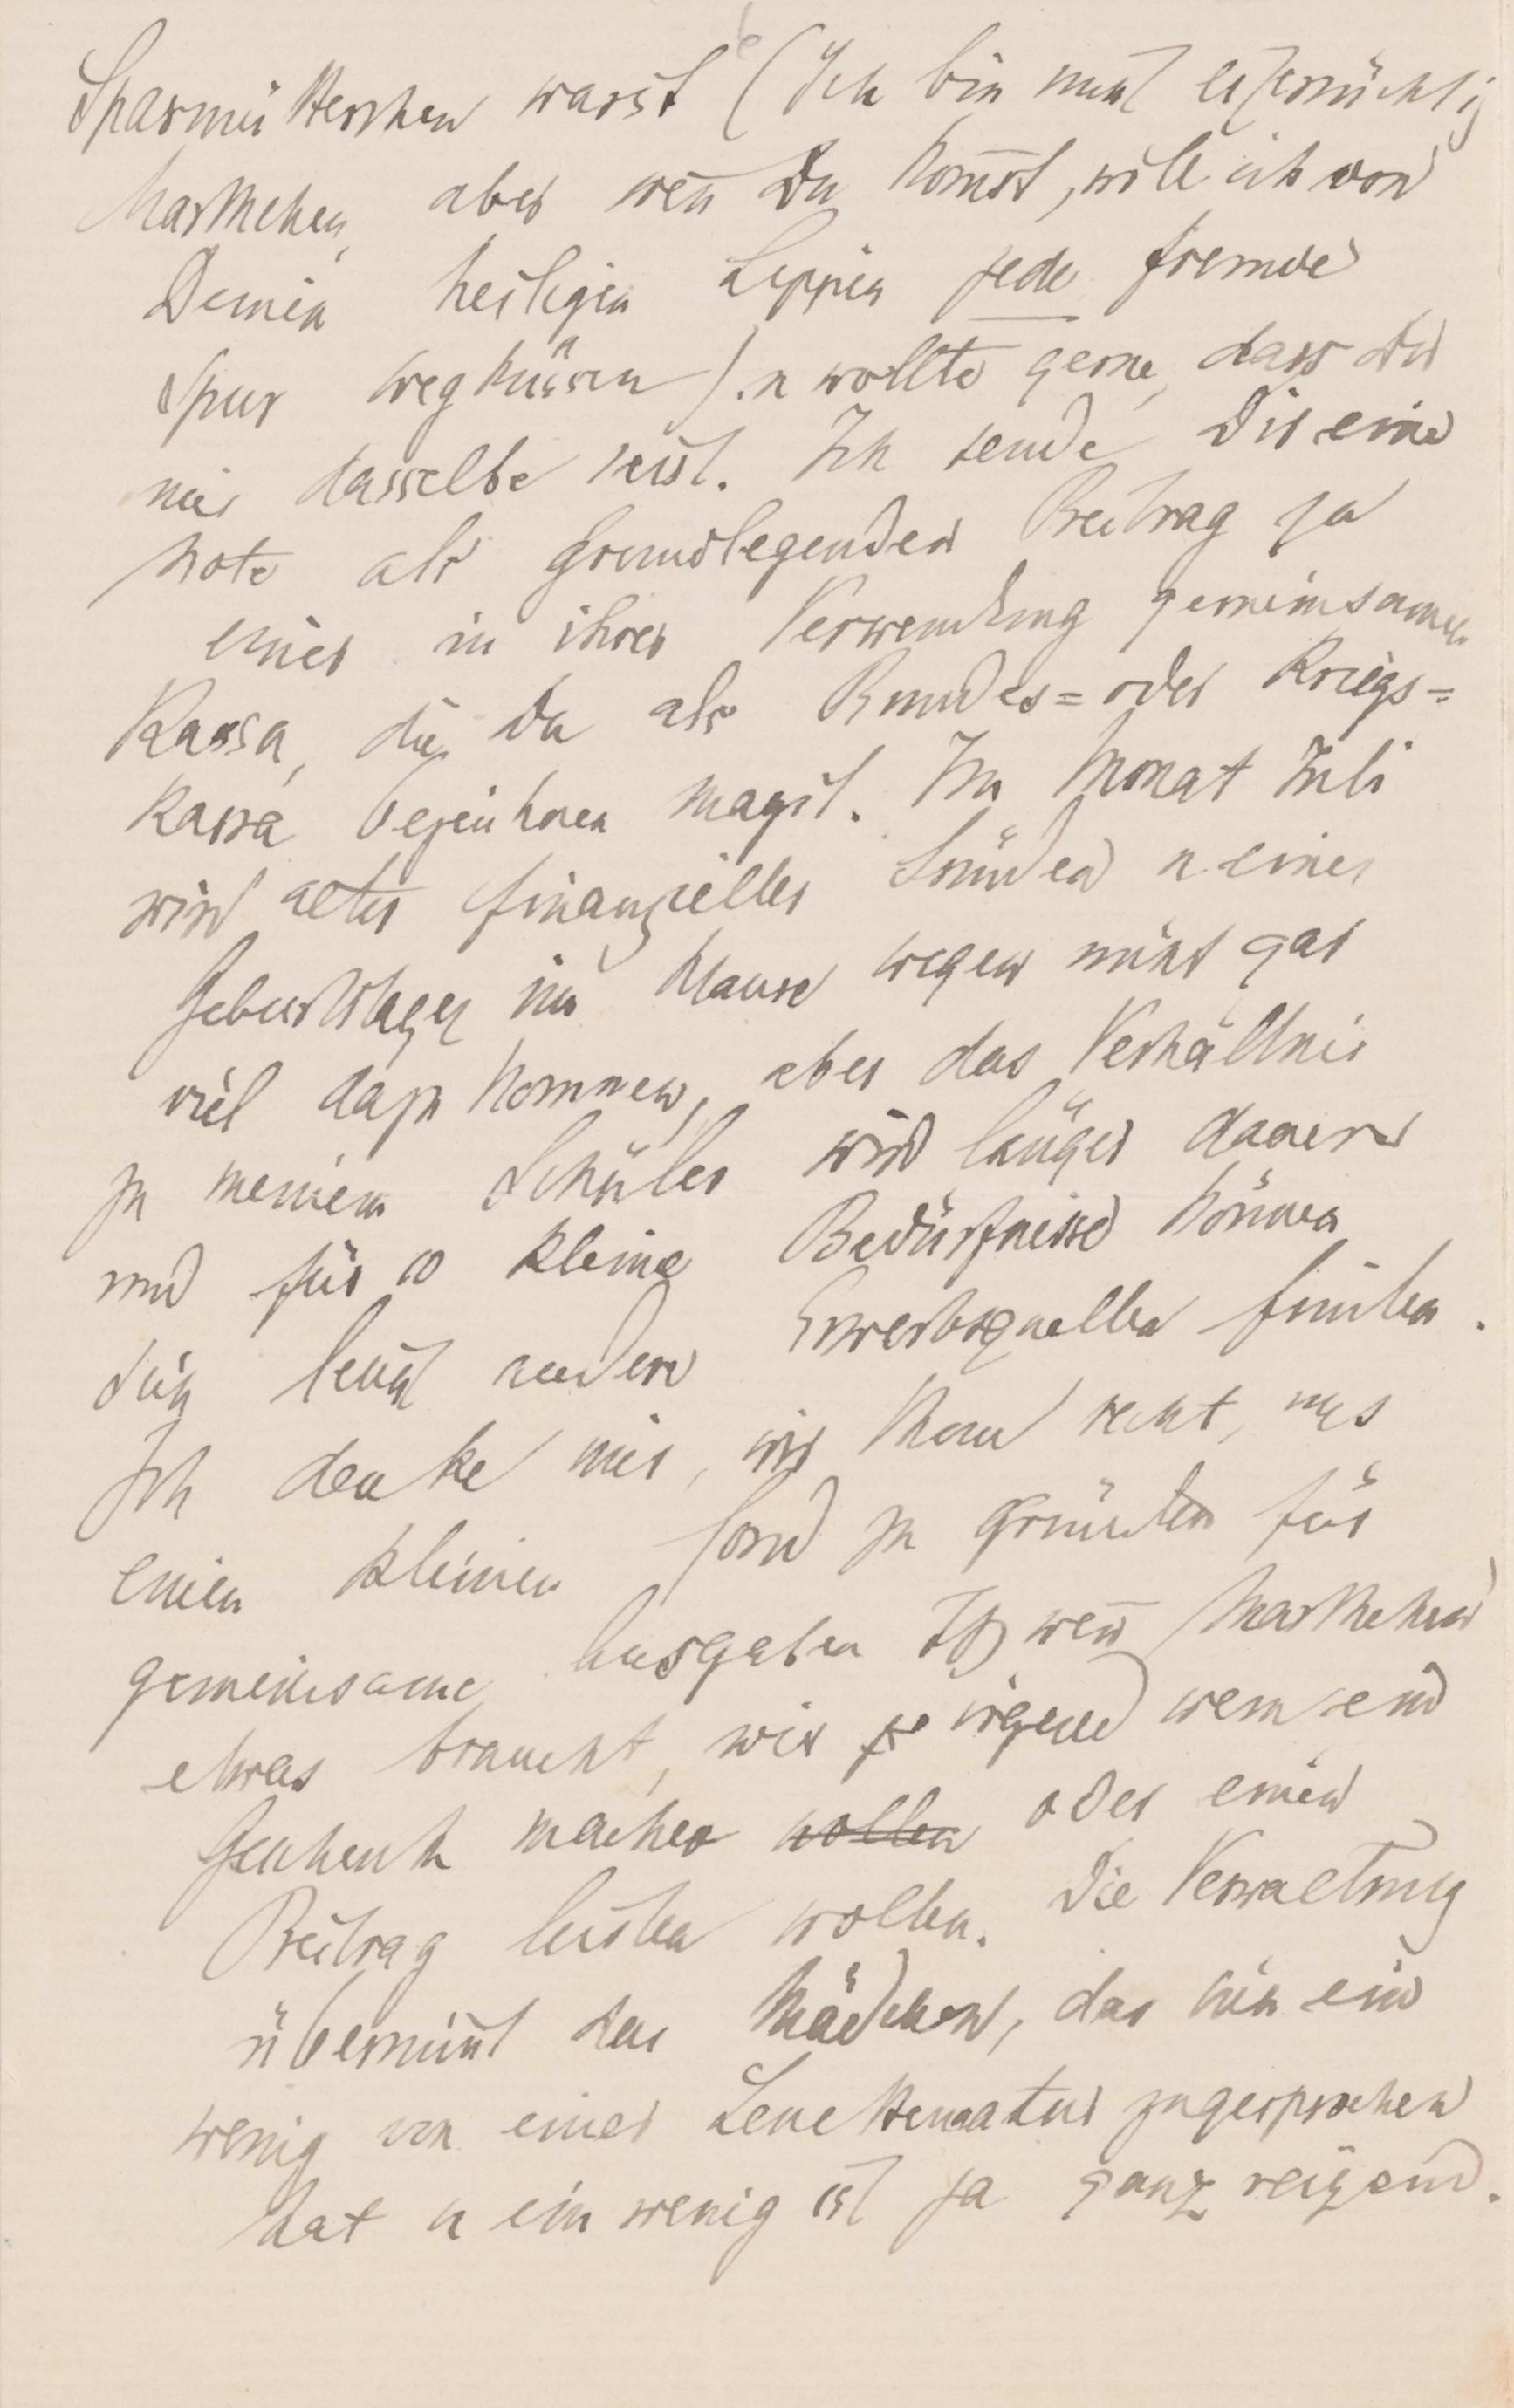 Sparmütterchen warst (Ich bin nicht eifersüchtig
Marthchen, aber wen̄ Du kom̄st, will ich von
Deinen heiligen Lippen jede fremde
Spur wegküssen). u wollte gerne, dass Du
mir dasselbe seist. Ich sende Dir eine
Note als grundlegenden Beitrag zu
einer in ihrer Verwendung gemeinsamen
Kassa, die Du als Bundes= oder Kriegs=
kassa bezeichnen magst. Im Monat Juli
wird alter finanzieller Sünden u eines
Geburtstages im Hause wegen nicht gar
viel dazu kommen, aber das Verhältnis
zu meinem Schüler wird länger dauern
und für so kleine Bedürfnisse können
sich leicht andere Erwerbsquellen finden.
Ich denke mir, wir thun recht, uns
einen kleinen Fond zu gründen für
gemeinsame Ausgaben zB wen̄ Marthchen
etwas braucht, wir irgend wem ein
Geschenk machen wollen oder einen
Beitrag leisten wollen. Die Verwaltung
übernim̄t das Mädchen, das sich ein
wenig von einer zugesprochen
hat u ein wenig ist ja ganz reizend.